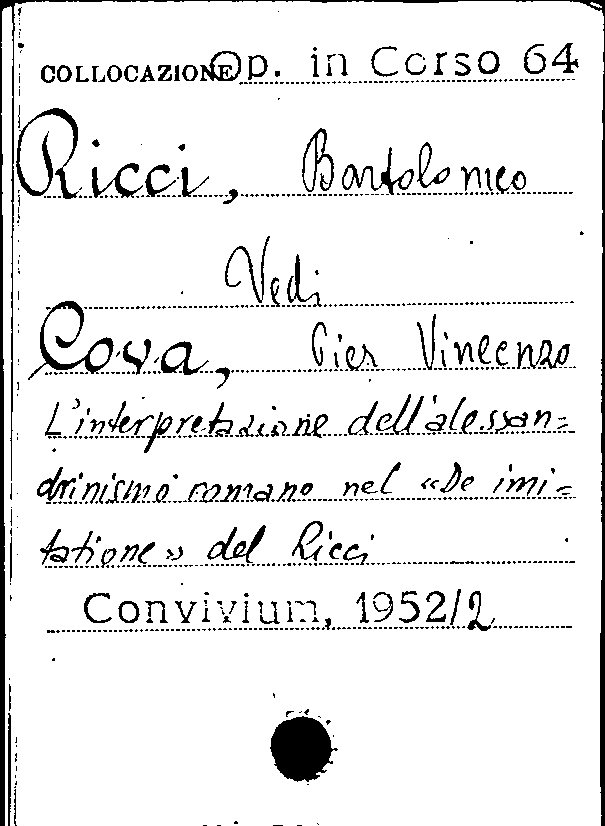 COLLOCAZIONE Op. in Corso 64
Ricci, Bartolomeo
Vedi
Cova, Pier Vincenzo
L'interpretazione dell'alessan=
drinismo romano nel «De imi=
tatione» del Ricci
Convivium, 1952/2